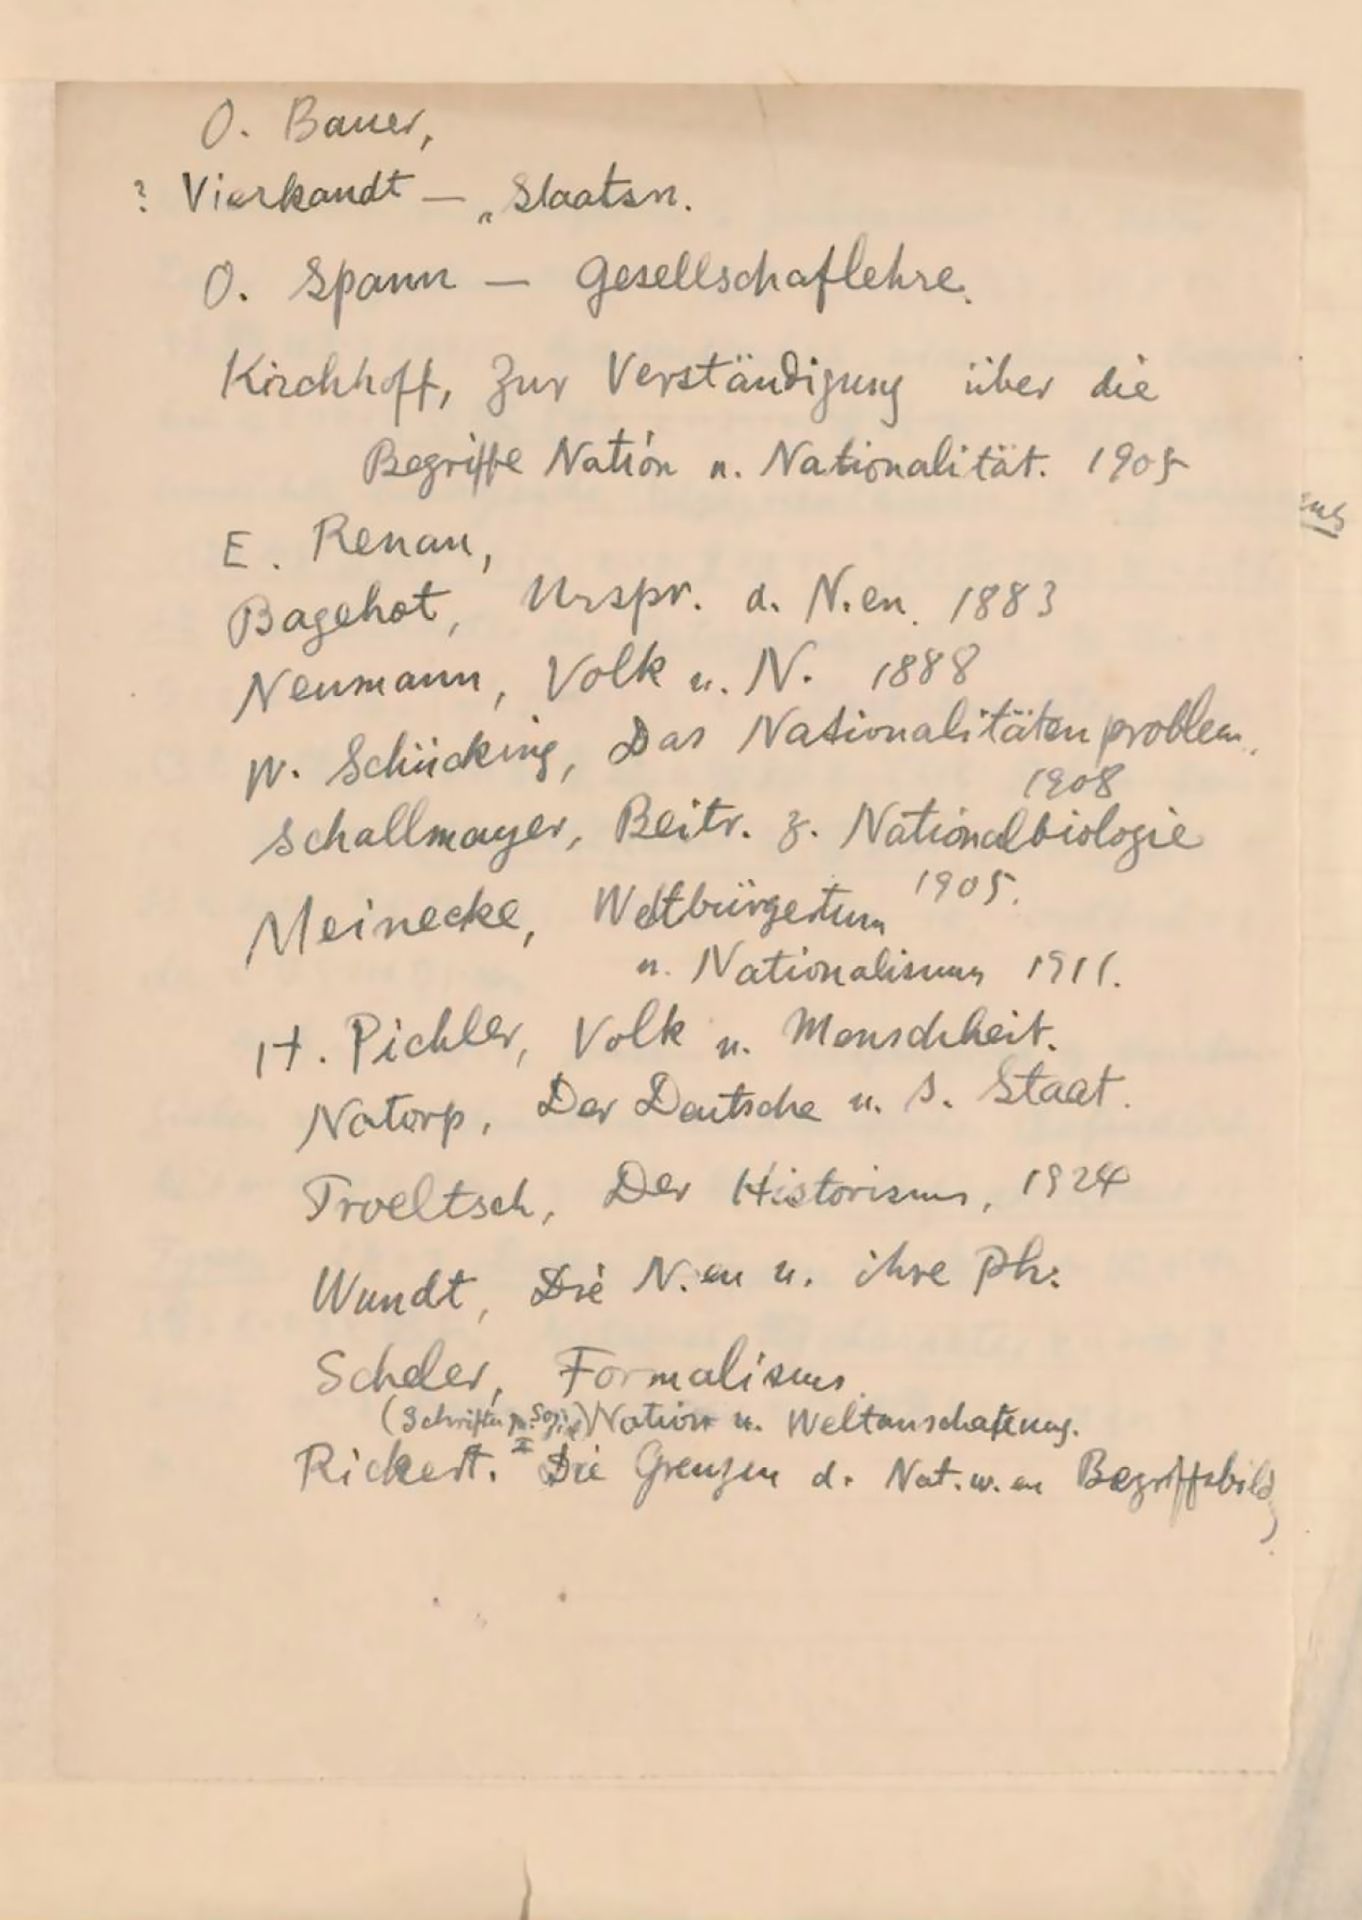 O. Bauer,
? Vierkandt — „Staatsn.
O. Spann — Gesellschaflehre.
Kirchhoff, Zur Verständigung über die
Begriffe Nation u. Nationalität. 1905
E. Renan,
Bagehot, Urspr. d. N.en. 1883
Neumann, Volk u. N. 1888
W. Schücking, Das Nationalitätenproblem.
1908
Schallmayer, Beitr. z. Nationalbiologie
1905.
Meinecke, Weltbürgertum
u. Nationalismus 1911.
H. Pichler, Volk u. Menschheit.
Natorp, Der Deutsche u. s. Staat.
Troeltsch, Der Historismus, 1924
Wundt, Die N.en u. ihre Ph.
Scheler, Formalismus
(Schriften z. Soz. II) Nation u. Weltanschauung.
Rickert. Die Grenzen d. Nat.w.en Begriffsbild